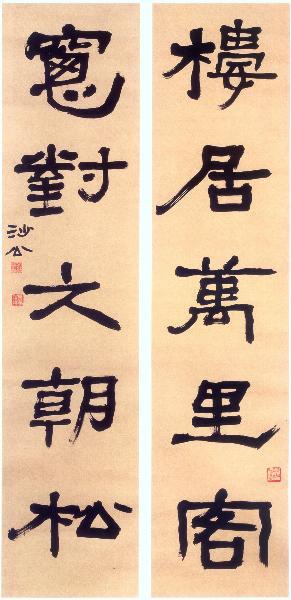 樓居萬里客
窻對六朝松
沙公